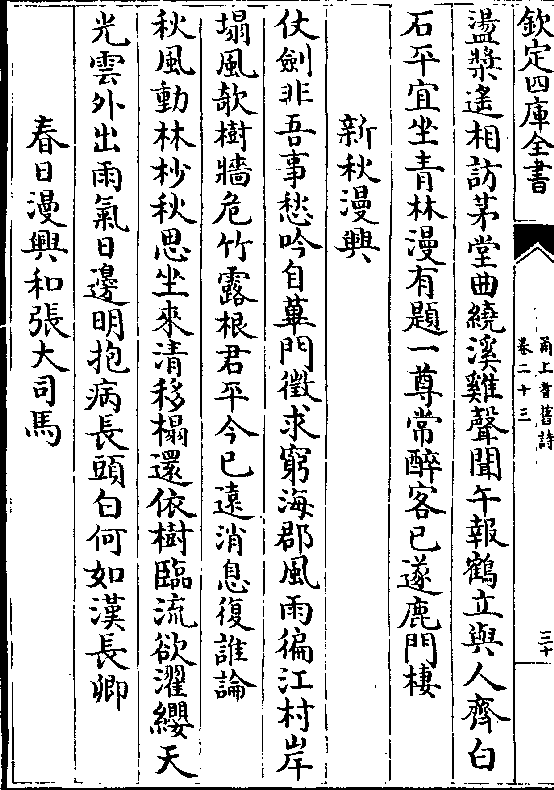 欽定四庫全書
甬上耆舊詩
卷二十三
三十
盪槳遙相訪茅堂曲繞溪雞聲聞午報鶴立與人齊白
石平宜坐青林漫有題一尊常醉客已遂鹿門棲
新秋漫興
仗劍非吾事愁吟自蓽門徵求窮海郡風雨徧江村岸
塌風欹樹牆危竹露根君平今已遠消息復誰論
秋風動林杪秋思坐來清移榻還依樹臨流欲濯纓天
光雲外出雨氣日邊明抱病長頭白何如漢長卿
春日漫興和張大司馬